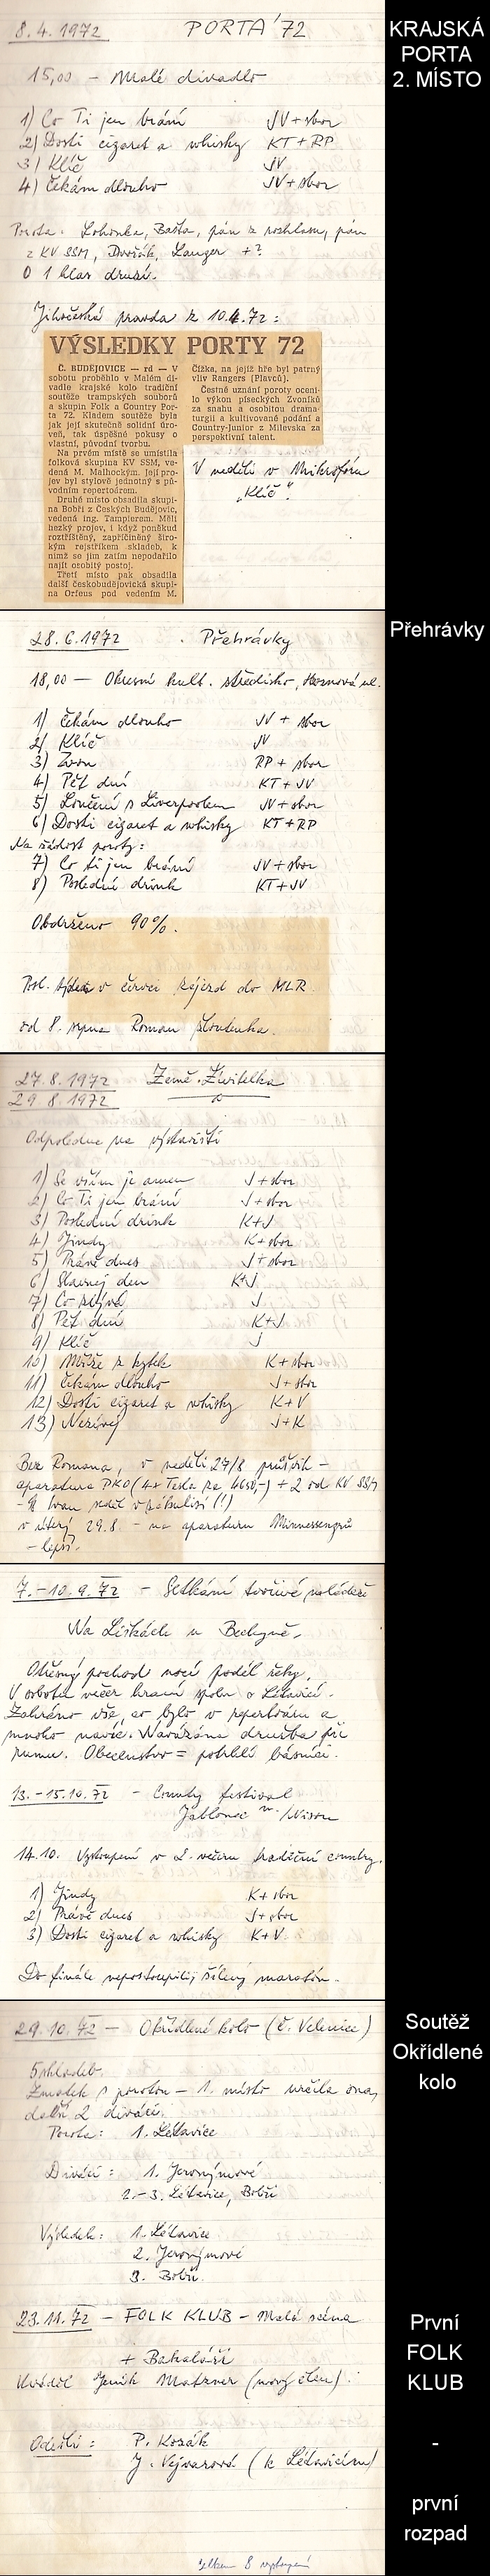 8.4.1972 PORTA '72
KRAJSKÁ
PORTA
2. MÍSTO
15,00 – Malé divadlo
1) Co Ti jen brání JV + sbor
2) Dosti cigaret a whisky KT + RP
3) Klíč JV
4) Čekám dlouho JV + sbor
Porota: Lohonka, Bašta, pán z rozhlasu, pán
z KV SSM, Dvořák, Langer + ?
O 1 hlas druzí.
Jihočeská pravda z 10.4.72:
VÝSLEDKY PORTY 72
Č. BUDĚJOVICE — rd — V
sobotu proběhlo v Malém di-
vadle krajské kolo tradiční
soutěže trampských souborů
a skupin Folk a Country Por-
ta 72. Kladem soutěže byla
jak její skutečně solidní úro-
veň, tak úspěšné pokusy o
vlastní, původní tvorbu.
Na prvém místě se umístila
folková skupina KV SSM, ve-
dená M. Malhockým. Její pro-
jev byl stylově jednotný s pů-
vodním repertoárem.
Druhé místo obsadila skupi-
na Bobři z Českých Budějovic,
vedená ing. Tampierem. Měli
hezký projev, i když poněkud
roztříštěný, zapříčiněný širo-
kým rejstříkem skladeb, k
nimž se jim zatím nepodařilo
najít osobitý postoj.
Třetí místo pak obsadila
další českobudějovická skupi-
na Orfeus pod vedením M.
Čížka, na jejíž hře byl patrný
vliv Rangers (Plavců).
Čestné uznání poroty oceni-
lo výkon píseckých Zvoníků
za snahu a osobitou drama-
turgii a kultivované podání a
Country-Junior z Milevska za
perspektivní talent.
V neděli v Mikrofóru
„Klíč“.
28.6.1972 Přehrávky
Přehrávky
18,00 — Okresní kult. středisko, ul.
1) Čekám dlouho JV + sbor
2) Klíč JV
3) Zvon RP + sbor
4) Pět dní KT + JV
5) Loučení s Liverpoolem JV + sbor
6) Dosti cigaret a whisky KT + RP
Na žádost poroty:
7) Co ti jen brání JV + sbor
8) Poslední drink KT + JV
Obdrženo 90%.
Posl. týden v červci zájezd do MLR
od 8. srpna Roman
27.8.1972 Země Živitelka
29.8.1972
Odpoledne na výstavišti
1) Se vším je amen J + sbor
2) Co Ti jen brání J + sbor
3) Poslední drink K+J
4) Jindy K + sbor
5) Právě dnes J + sbor
6) Slavnej den K+J
7) Co zbývá J
8) Pět dní K+J
9) Klíč J
10) Mříže z kytek K + sbor
11) Čekám dlouho J + sbor
12) Dosti cigaret a whisky K + V
13) Nezívej J + K
Bez Romana, v neděli 27/8 průšvih –
aparatura PKO (4x Tesla za 4650,-) + 2 od KV SSM
– Ivan seděl v zákulisí (!)
v úterý 29.8. – na aparaturu Minnessengrů
– lepší.
7.–10.9.72 – Setkání tvořivé mládeže
Na Liškách u Bechyně.
Otřesný pochod nocí podél řeky.
V sobotu večer hraní spolu s Létavicí.
Zahráno vše, co bylo v repertoáru a
mnoho navíc. Navázána družba při
rumu. Obecenstvo = potrhlí básníci.
13.–15.10.72 – Country festival
Jablonec n/Nisou
14.10. Vystoupení v 2. večeru tradiční country.
1) Jindy K + sbor
2) Právě dnes J + sbor
3) Dosti cigaret a whisky K + V
Do finále nepostoupili, šílený maratón.
29.10.72 — Okřídlené kolo (Č. Velenice)
Soutěž
Okřídlené
kolo
5 skladeb.
Zmatek s porotou – 1. místo určila ona,
další 2 diváci.
Porota: 1. Létavice
Diváci: 1. Jeronýmové
2.–3. Létavice, Bobři
Výsledek: 1. Létavice
2. Jeronýmové
3. Bobři
23.11.72 – FOLK KLUB – Malá scéna
První
FOLK
KLUB
-
první
rozpad
+ Bakaláři
Uváděl Jeník Matzner (nový člen).
Odešli: P. Kozák
J. Vejvarová (k Létavicím)
celkem 8 vystoupení